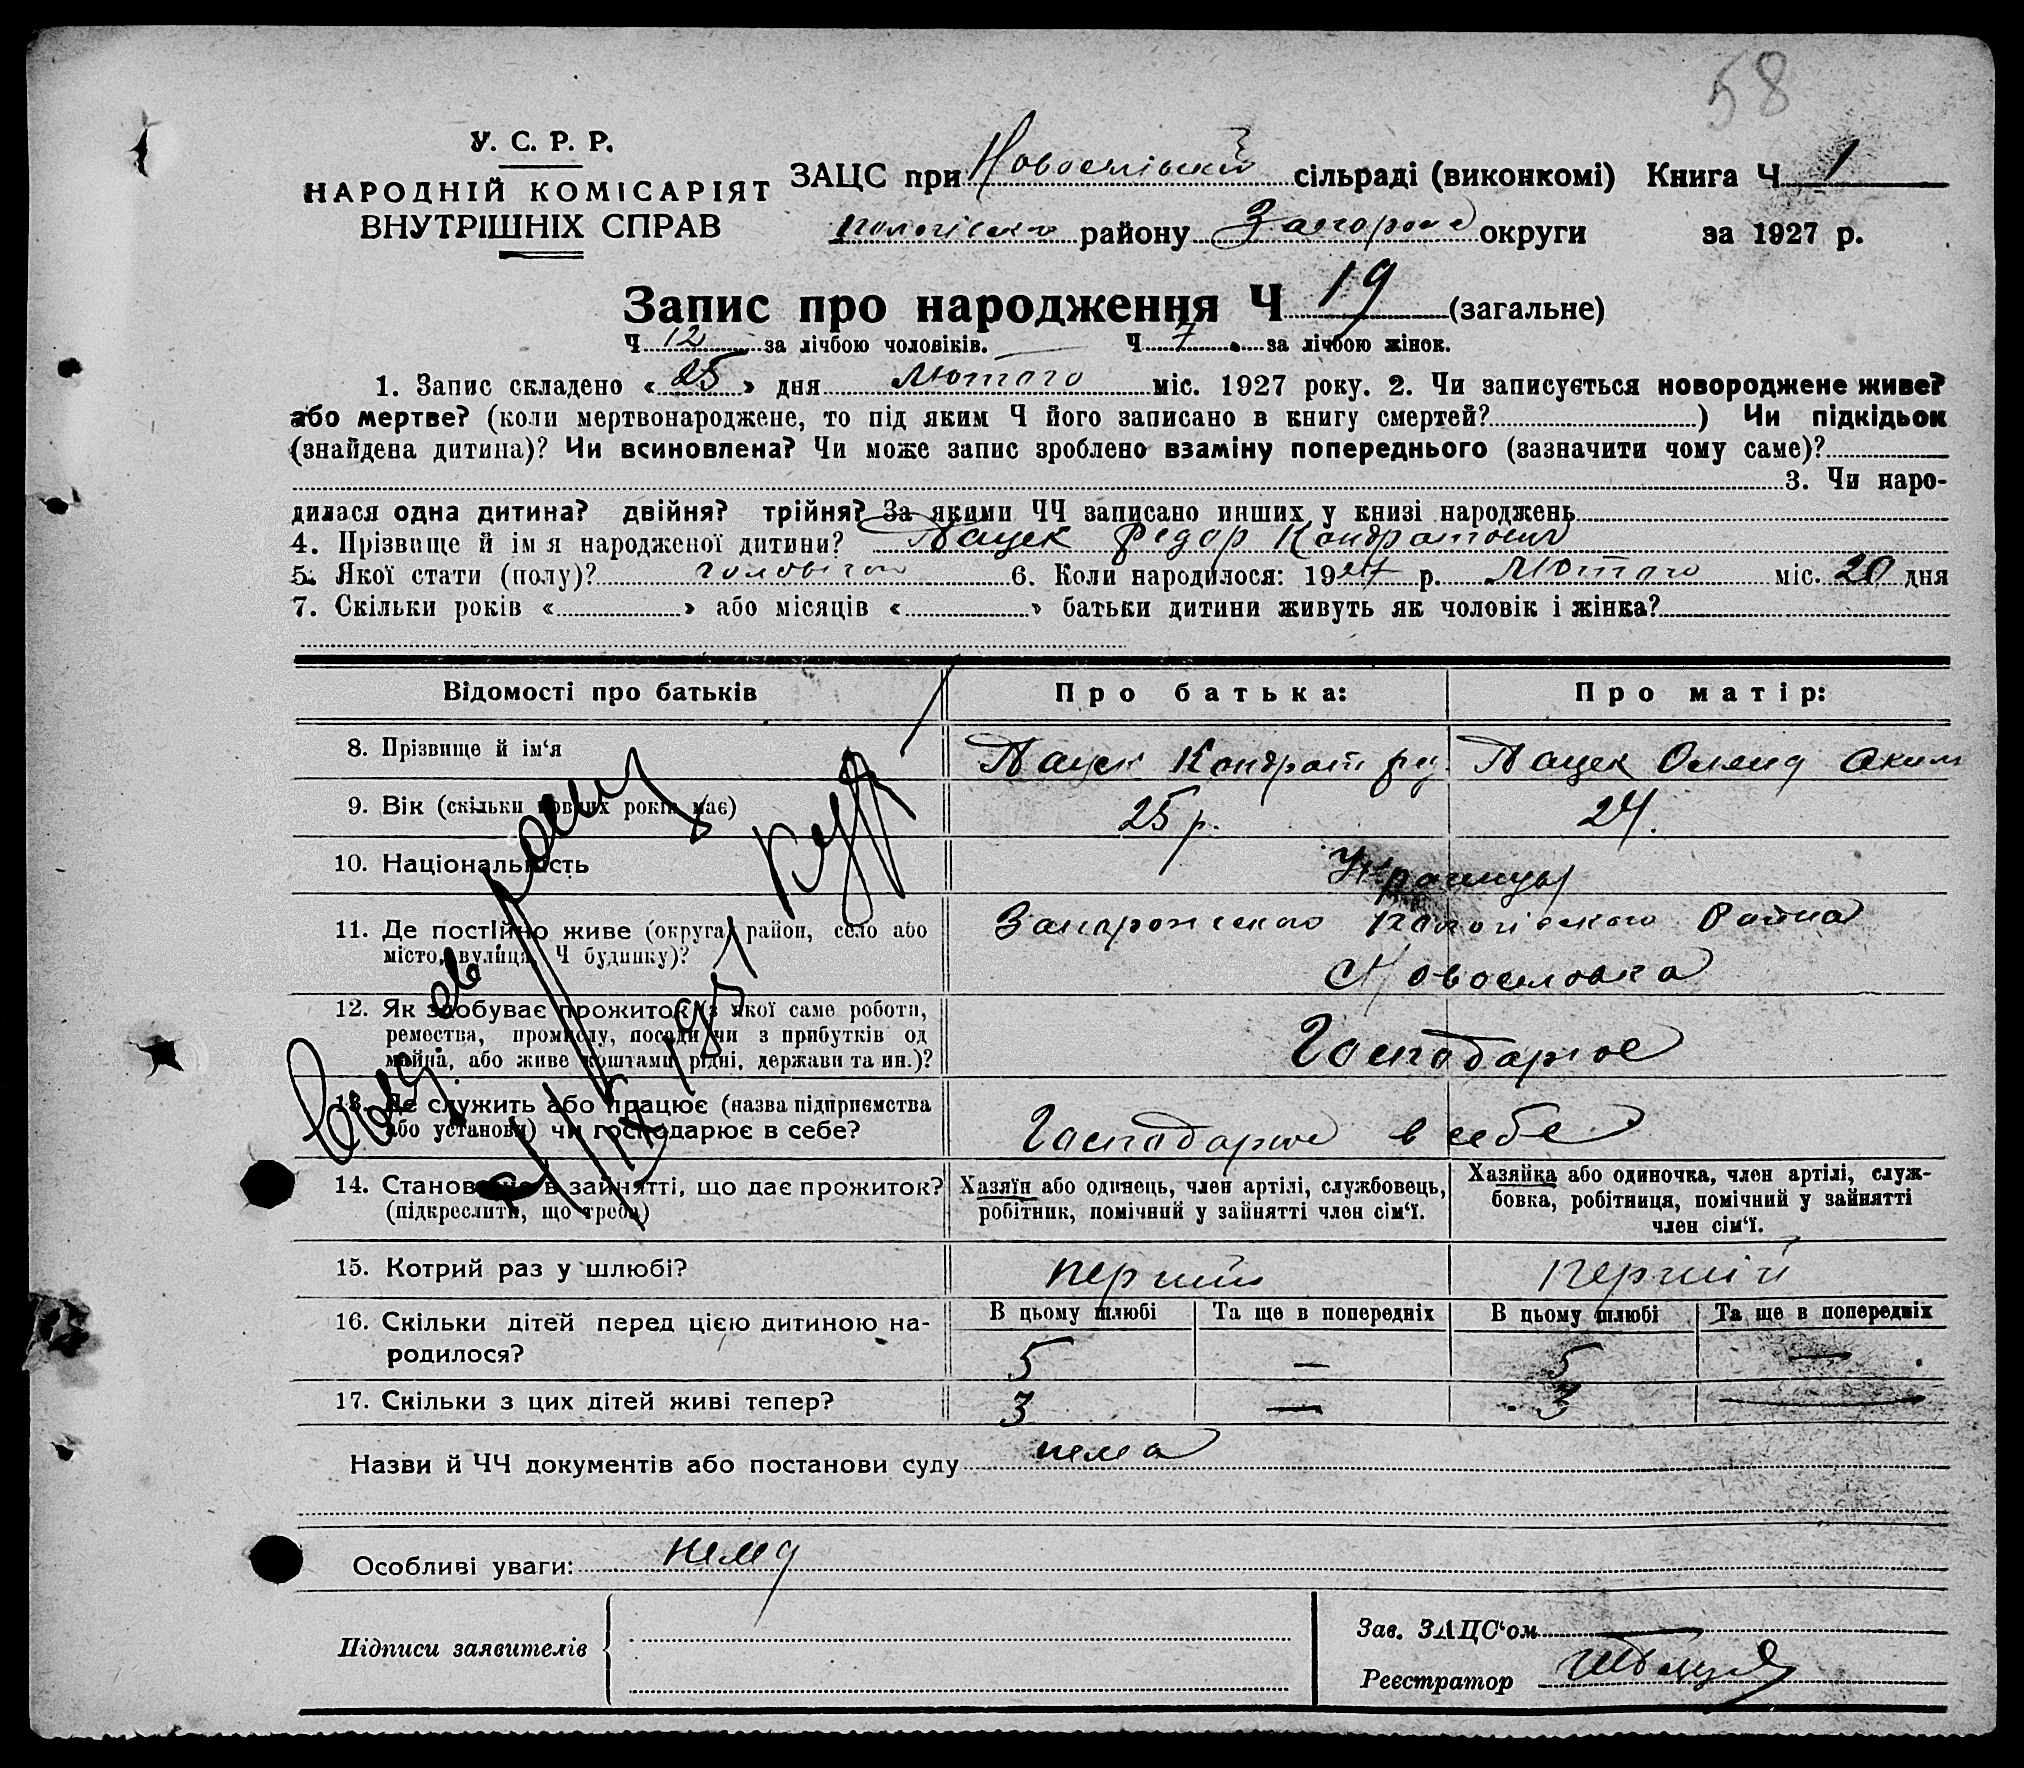 58
У. С. Р. Р.
НАРОДНІЙ КОМІСАРІЯТ
ВНУТРІШНІХ СПРАВ
ЗАЦС при Новоселівській сільраді (виконкомі) Книга Ч 1
Пологівсько району Запорож округи за 1927 р.
Запис про народження Ч 19 (загальне)
Ч 12 за лічбою чоловіків. Ч 7 за лічбою жінок.
1. Запис складено «25» дня Лютого міс. 1927 року. 2. Чи записується новороджене живе?
або мертве? (коли мертвонароджене, то під яким Ч його записано в книгу смертей?) Чи підкідьок
(знайдена дитина)? Чи всиновлена? Чи може запис зроблено взаміну попереднього (зазначити чому саме)?
3. Чи наро-
дилася одна дитина? двійня? трійня? За якими ЧЧ записано инших у книзі народжень
4. Прізвище й імя народженої дитини? Пацек Федор Кондратович
5. Якої стати (полу)? чоловічой 6. Коли народилося: 1927 р. Лютого міс. 20 дня
7. Скільки років « » або місяців « » батьки дитини живуть як чоловік і жінка?
Відомості про батьків Про батька: Про матір:
8. Прізвище й ім'я Пацек Кондрат Фед. Пацек Оляна Аким
9. Вік (скільки повних років має) 25 р. 24.
10. Національність Украинцы
11. Де постійно живе (округа, район, село або Запорожського Пологівского Района
місто, вулиця, Ч будинку)? Новоселовка
12. Як здобуває прожиток (з якої саме роботи,
ремества, промислу, посади чи з прибутків од
майна, або живе коштами рідні, держави та ин.)? Господарює
13. Де служить або працює (назва підприємства
або установи) чи господарює в себе? Господарює в себе
14. Становище в зайнятті, що дає прожиток? Хазяїн або одинець, член артілі, службовець, Хазяйка або одиночка, член артілі, служ-
(підкреслити, що треба) робітник, помічний у зайнятті член сім'ї. бовка, робітниця, помічний у зайнятті
член сім'ї.
15. Котрий раз у шлюбі? перший перший
16. Скільки дітей перед цією дитиною на- В цьому шлюбі Та ще в попередніх В цьому шлюбі Та ще в попередніх
родилося? 5 — 5 —
17. Скільки з цих дітей живі тепер? 3 — 3 —
Назви й ЧЧ документів або постанови суду нема
Особливі уваги: нема
Підписи заявителів
Зав. ЗАЦС'ом
Реєстратор